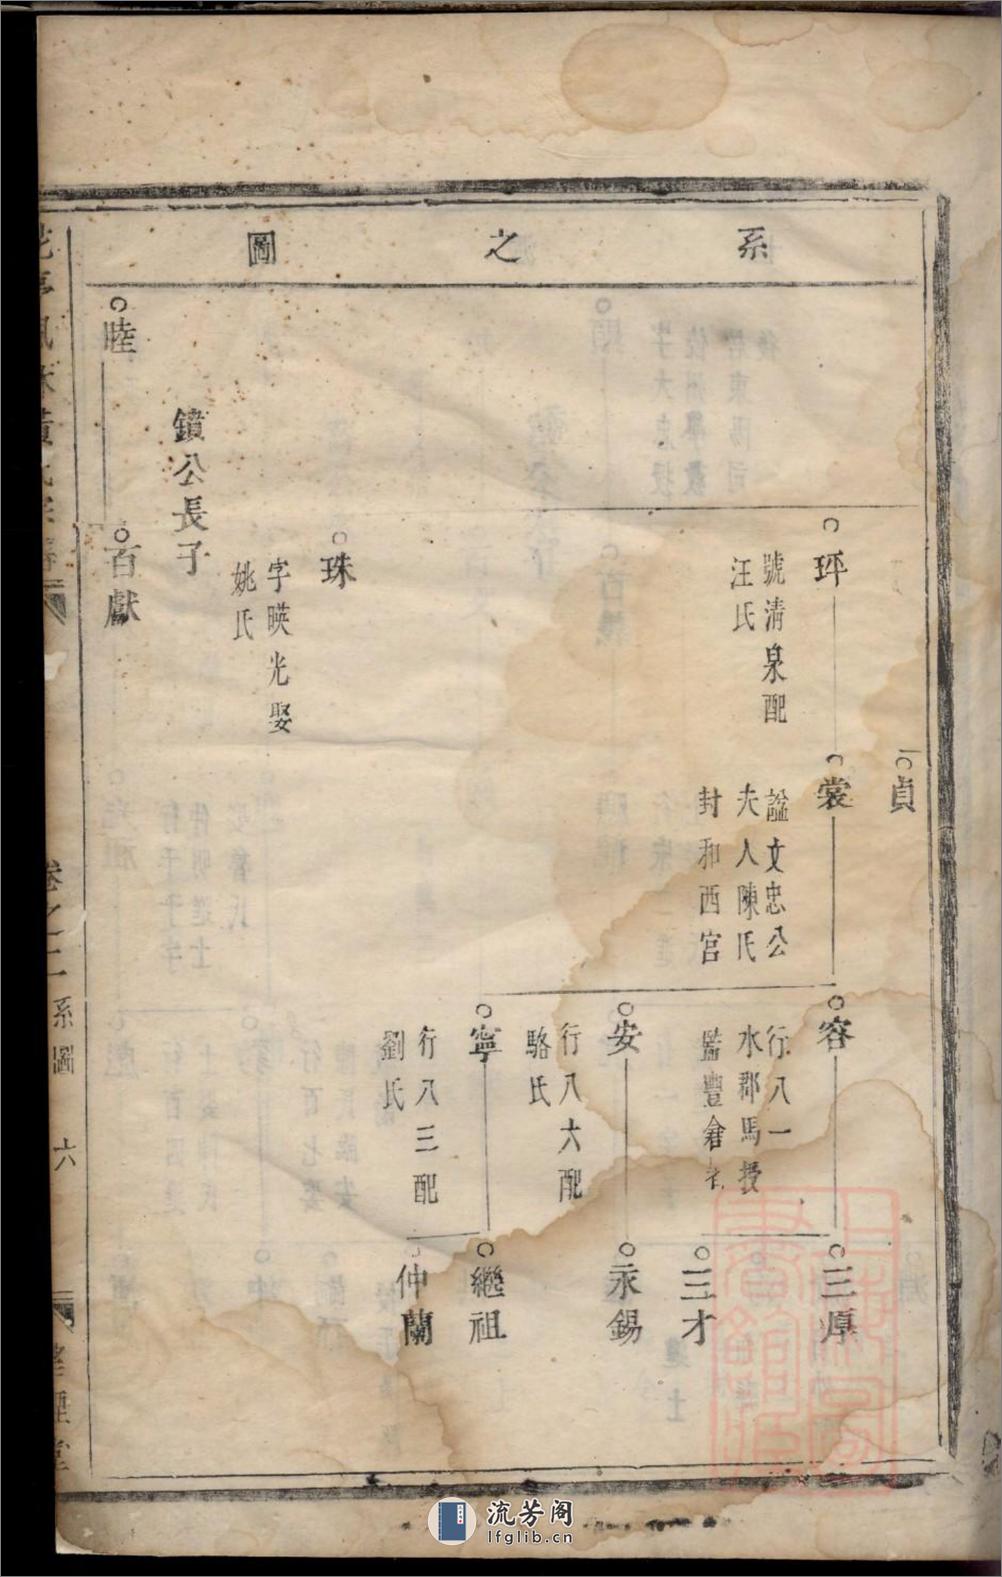 系之圖
貞
玶
號清泉配
汪氏
裳
諡文忠公
夫人陳氏
封和西宮
容
行八一
水郡馬授
監豐倉
三厚
三才
安
行八六配
駱氏
永錫
寧
行八三配
劉氏
繼祖
仲蘭
珠
字暎光娶
姚氏
鐼公長子
睦
百獻
卷之二
系圖
六
流芳阁
lfglib.cn